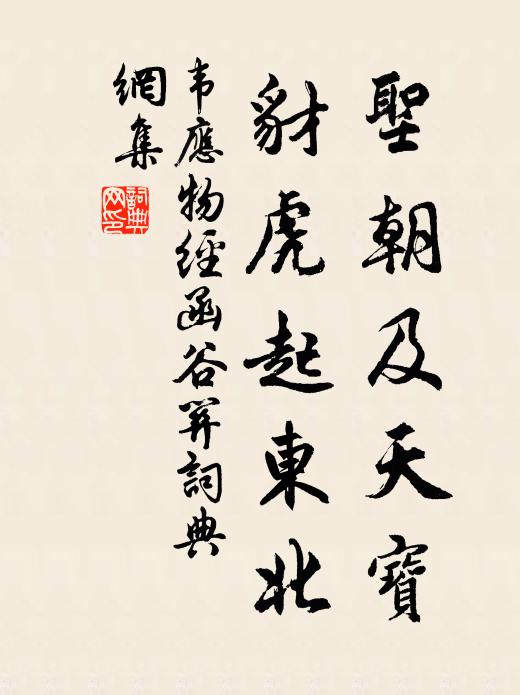 聖朝及天寶
豺虎起東北
韦應物經函谷关詞典
網集
詞典網印